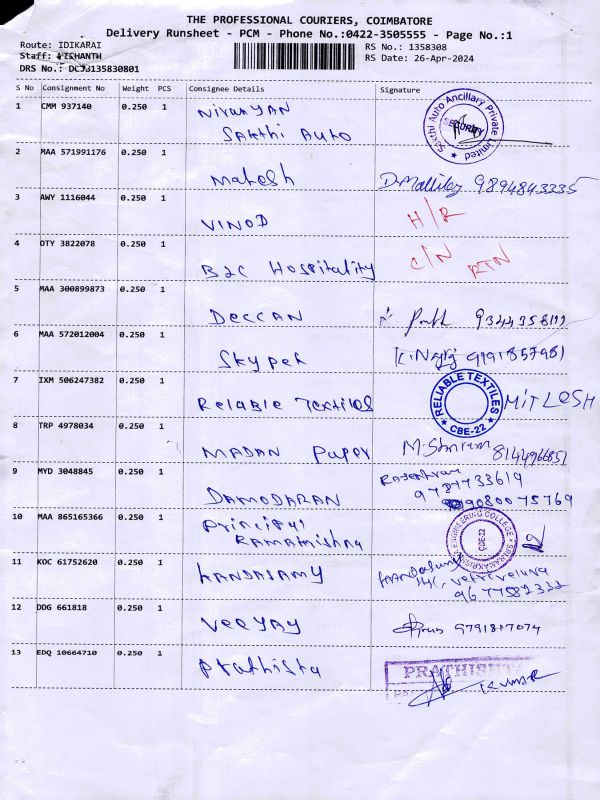 THE PROFESSIONAL COURIERS, COIMBATORE
Delivery Runsheet - PCM - Phone No.:0422-3505555 - Page No.:1
Route: IDIKARAI
RS No.: 1358308
Staff: NISHANTH
RS Date: 26-Apr-2024
DRS No.:
S No Consignment No Weight PCS Consignee Details Signature
1 CMM 937140 0.250 1 Niranjan
Sakthi Auto
Sakthi Auto Ancillary Private Limited
SECURITY
2 MAA 571991176 0.250 1
Mahesh 9894843235
3 AWY 1116044 0.250 1
VINOD H/R
4 DTY 3822078 0.250 1
B2C Hospitality C/N RTN
5 MAA 300899873 0.250 1
DECCAN
6 MAA 572012004 0.250 1
Skyper
7 IXM 506247382 0.250 1
Relable Textiles
RELIABLE TEXTILES
CBE-22
MITLESH
8 TRP 4978034 0.250 1
MADAN Paper M. Shriram
9 MYD 3048845 0.250 1
9787733619
DAMODARAN 9080075769
10 MAA 865165366 0.250 1 Principal
Ramakrishna
ENGINEERING COLLEGE
CBE-22
11 KOC 61752620 0.250 1
KANDASAMY
9677582322
12 DDG 661818 0.250 1
VEEYAY
13 EDQ 10664710 0.250 1
Prathista
PRATHISHTA
KUMAR